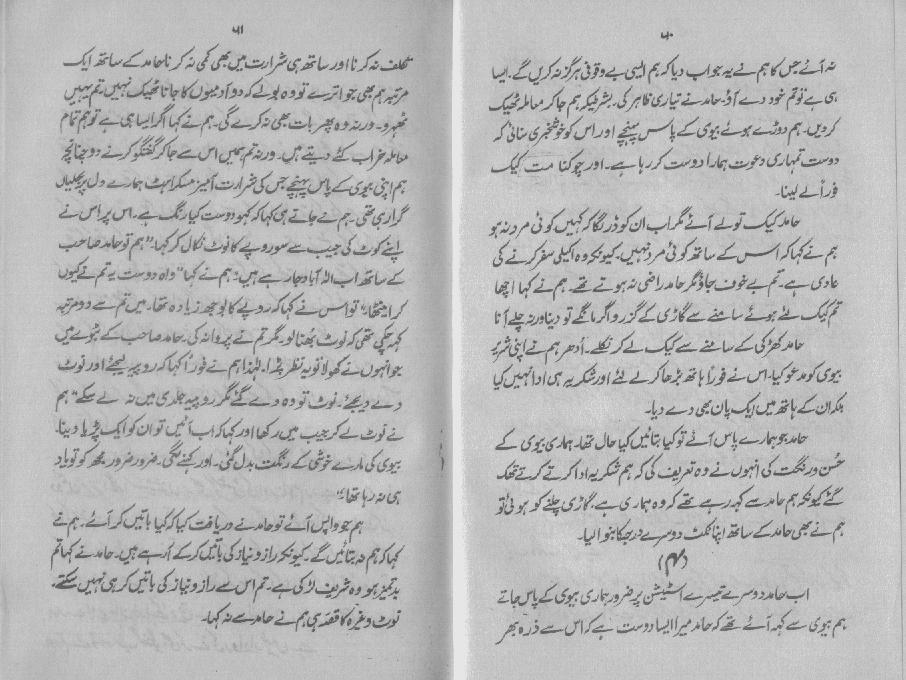 ۵۰
نہ آئے جس کا ہم نے یہ جواب دیا کہ ہم ایسی بے وقوفی ہرگز نہ کریں گے۔ ایسا
ہی ہے تو تم خود دے آؤ۔ حامد نے تیاری ظاہر کی۔ بشرطیکہ ہم جا کر معاملہ ٹھیک
کر دیں۔ ہم دوڑے ہوئے بیوی کے پاس پہنچے اور اس کو خوشخبری سنائی کہ
دوست تمہاری دعوت ہمارا دوست کر رہا ہے۔ اور چوکنا مت کیک
فوراً لے لینا۔
حامد کیک تو لے آئے مگر اب ان کو ڈر لگا کہ کہیں کوئی مرد نہ ہو
ہم نے کہا کہ اس کے ساتھ کوئی مرد نہیں۔ کیونکہ وہ اکیلی سفر کرنے کی
عادی ہے۔ تم بے خوف جاؤ مگر حامد راضی نہ ہوتے تھے۔ ہم نے کہا اچھا
تم کیک لئے ہوئے سامنے سے گاڑی کے گزرو اگر مانگے تو دینا ورنہ چلے آنا
حامد کھڑکی کے سامنے سے کیک لے کر نکلے۔ اُدھر ہم نے اپنی شریر
بیوی کو مدعو کیا۔ اس نے فوراً ہاتھ بڑھا کر لے لئے اور شکریہ ہی ادا نہیں کیا
بلکہ ان کے ہاتھ میں ایک پان بھی دے دیا۔
حامد جو ہمارے پاس آئے تو کیا بتائیں کیا حال تھا۔ ہماری بیوی کے
حُسن و رنگت کی انہوں نے وہ تعریف کی کہ ہم شکریہ ادا کرتے کرتے تھک
گئے کیونکہ ہم حامد سے کہہ رہے تھے کہ وہ ہماری ہے۔ گاڑی چلنے کو ہوئی تو
ہم نے بھی حامد کے ساتھ اپنا ٹکٹ دوسرے درجہ کا بنوا لیا۔
(۴)
اب حامد دوسرے تیسرے اسٹیشن پر ضرور ہماری بیوی کے پاس جاتے
ہم بیوی سے کہہ آئے تھے کہ حامد میرا ایسا دوست ہے کہ اس سے ذرہ بھر
۵۱
تکلف نہ کرنا اور ساتھ ہی شرارت میں بھی کمی نہ کرنا حامد کے ساتھ ایک
مرتبہ ہم بھی جو اترے تو وہ بولے کہ دو آدمیوں کا جانا ٹھیک نہیں، تم یہیں
ٹھہرو۔ ورنہ وہ پھر بات بھی نہ کرے گی۔ ہم نے کہا اگر ایسا ہی ہے تو ہم تمام
معاملہ خراب کئے دیتے ہیں۔ ورنہ تم ہمیں اس سے جا کر گفتگو کرنے دو چنانچہ
ہم اپنی بیوی کے پاس پہنچے جس کی شرارت آمیز مسکراہٹ ہمارے دل پر بجلیاں
گرا رہی تھی۔ ہم نے جاتے ہی کہا کہ کہو دوست کیا رنگ ہے۔ اس پر اس نے
اپنے کوٹ کی جیب سے سو روپے کا نوٹ نکال کر کہا۔ "ہم تو حامد صاحب
کے ساتھ اب الہ آباد جا رہے ہیں" ہم نے کہا "واہ دوست یہ تم نے کیوں
کر اینٹھا" تو اس نے کہا کہ روپے کا بوجھ زیادہ تھا۔ میں تم سے دو مرتبہ
کہہ چکی تھی کہ نوٹ بھنا لو۔ مگر تم نے پروا نہ کی۔ حامد صاحب کے بٹوے میں
جو انہوں نے کھولا تو یہ نظر پڑا۔ لہٰذا ہم نے فوراً کہا کہ روپیہ لیجئے اور نوٹ
دے دیجئے۔ نوٹ تو وہ دے گئے مگر روپیہ جلدی میں نہ لے سکے" ہم
نے نوٹ لے کر جیب میں رکھا اور کہا کہ اب آئیں تو ان کو ایک پڑیا دینا۔
بیوی کی مارے خوشی کے رنگت بدل گئی۔ اور کہنے لگی۔ ضرور ضرور مجھ کو تو یاد
ہی نہ رہا تھا"
ہم جو واپس آئے تو حامد نے دریافت کیا کہ کیا باتیں کر آئے۔ ہم نے
کہا کہ ہم نہ بتائیں گے۔ کیونکہ راز و نیاز کی باتیں کر کے آ رہے ہیں۔ حامد نے کہا تم
بدتمیز ہو وہ شریف لڑکی ہے۔ تم اس سے راز و نیاز کی باتیں کر ہی نہیں سکتے۔
نوٹ وغیرہ کا قصہ ہی ہم نے حامد سے نہ کہا۔